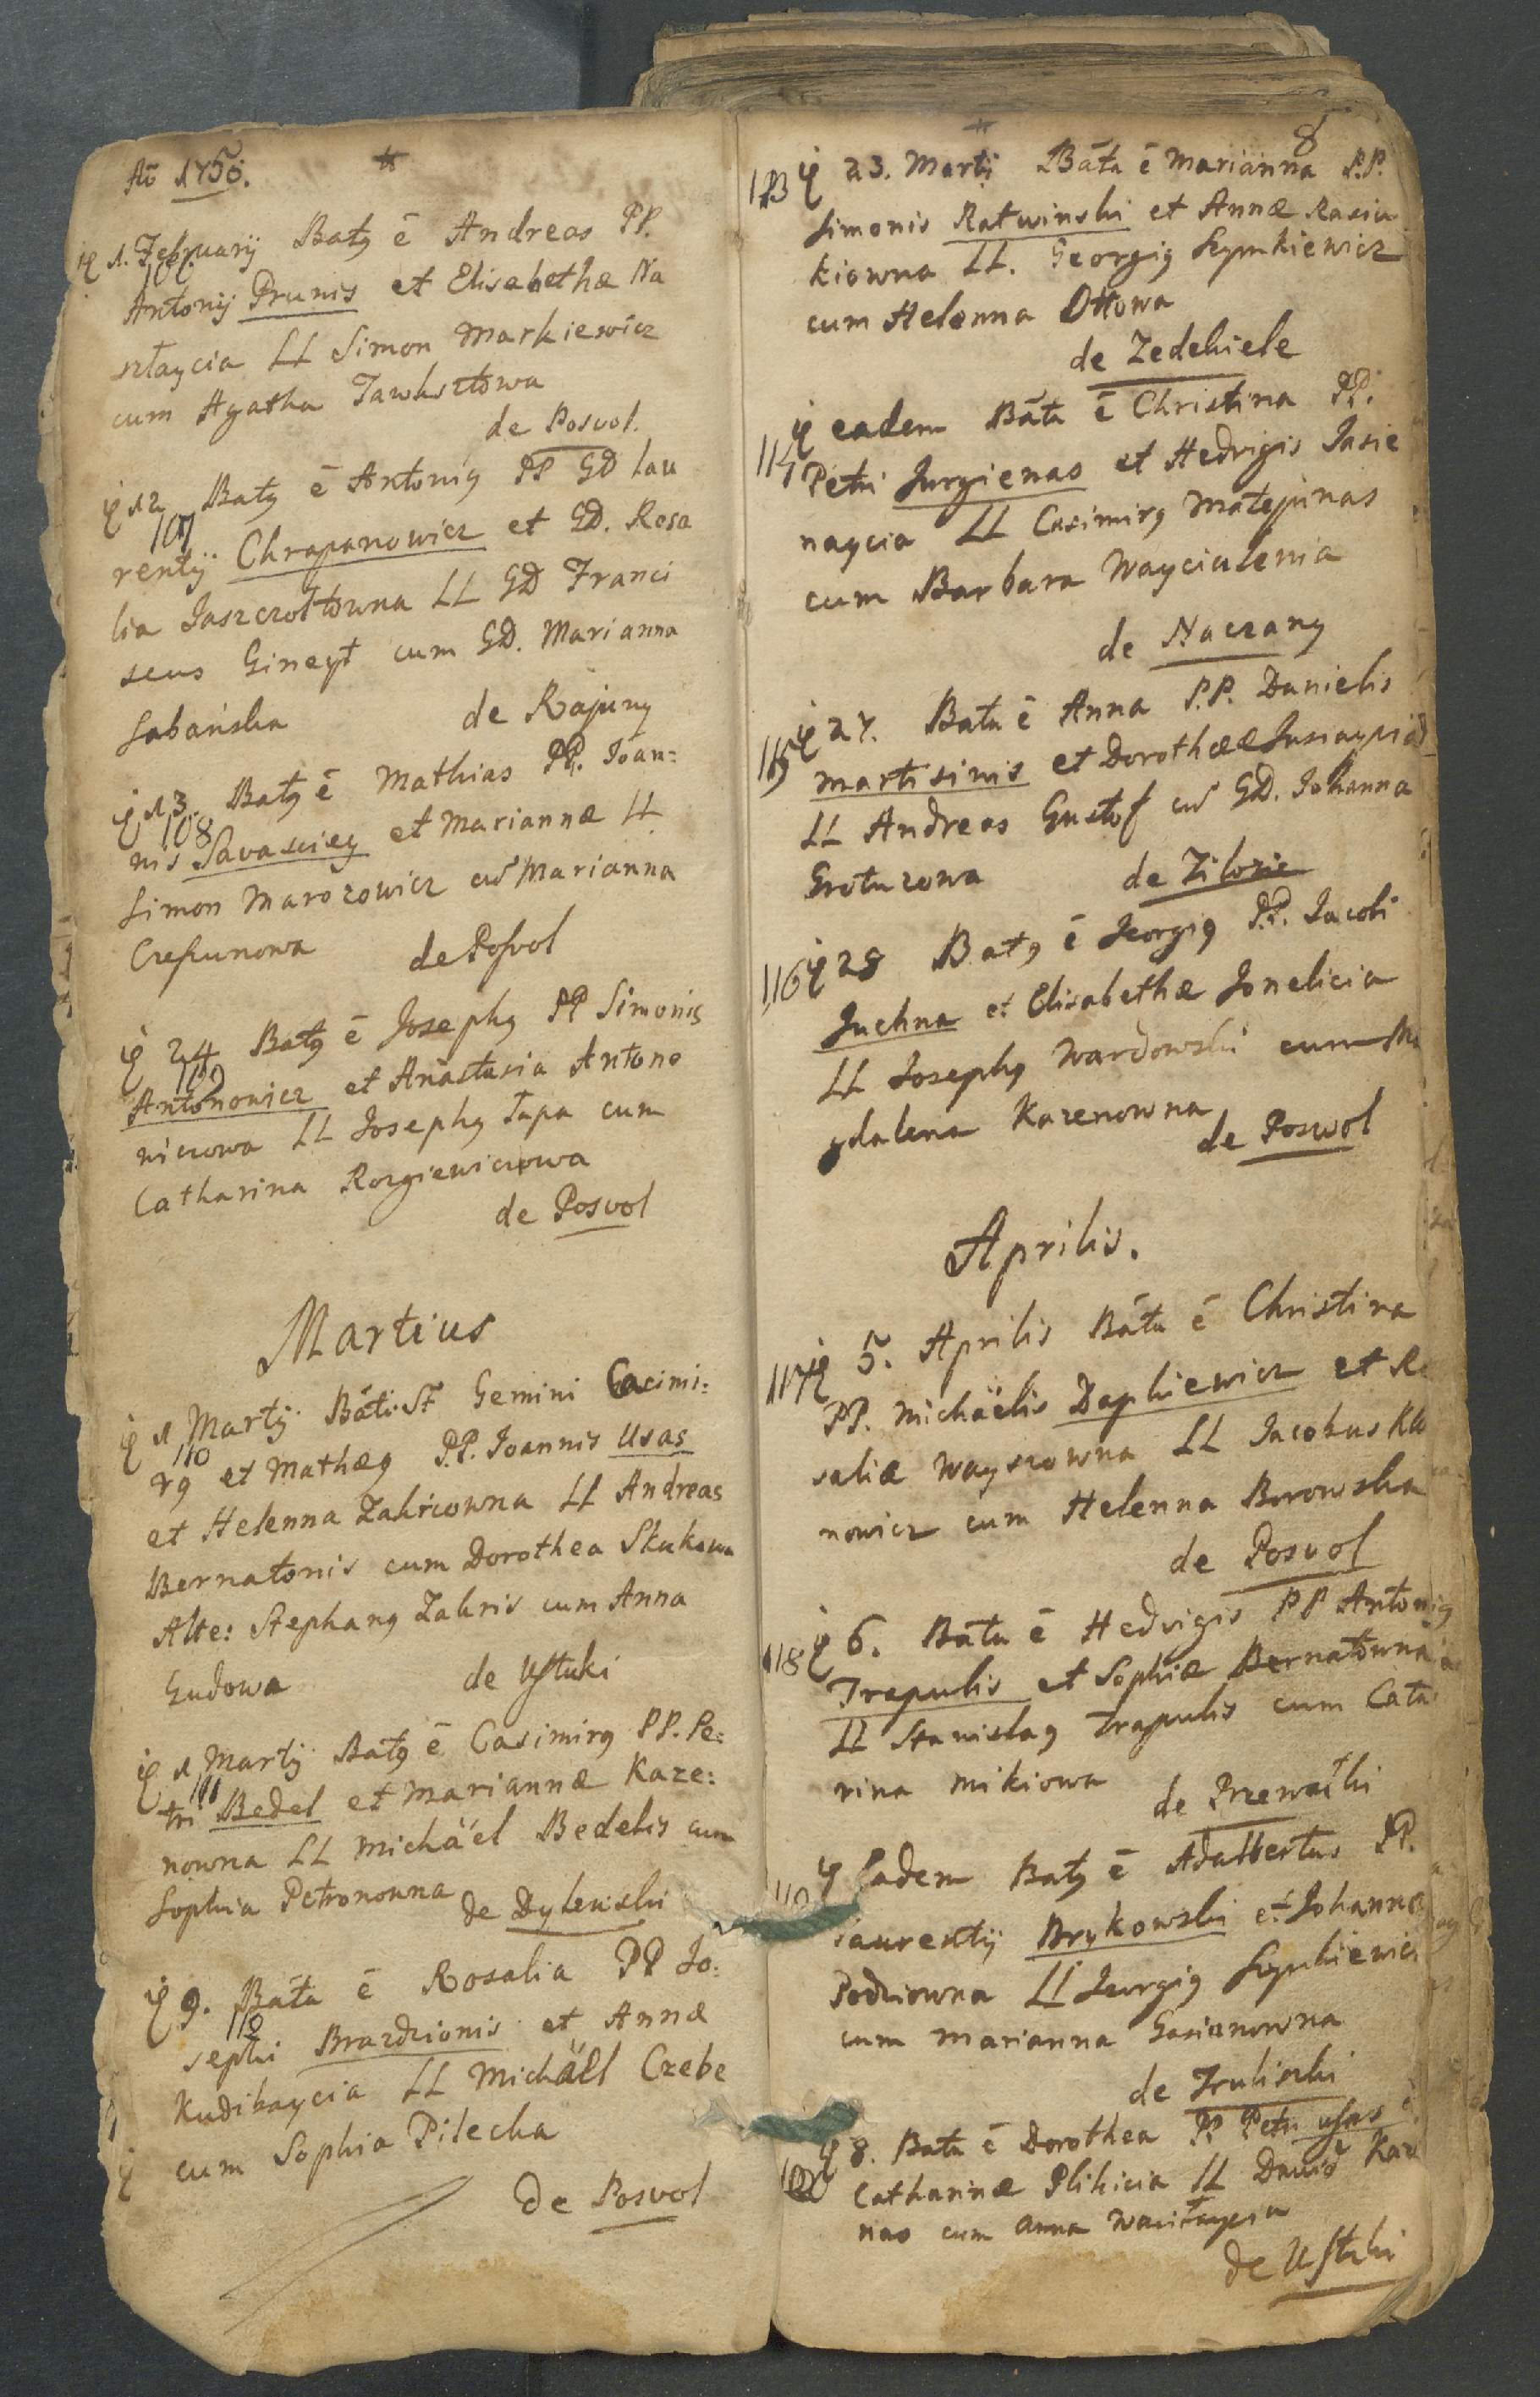 Aō 1758.
1. February Batꝰ ē Andreas PP.
106
Antonij Prunis et Elisabethæ Na
sztaycia LL Simon Markiewicz
cum Agatha Tawksztowa
de Posvol.
12 Batꝰ ē Antoniꝰ PP GD Lau
107
rentij Chrapanowicz et GD. Rosa
lia Jaszczoltowna LL GD Franci
scus Gineyt cum GD. Marianna
Labańska de Rajuny
13. Batꝰ ē Mathias PP. Joan=
108
nis Savasciey et Mariannæ LL
Simon Marozowicz cū Marianna
Czeszunowa de Posvol
24 Batꝰ ē Josephꝰ PP Simonis
109
Antonowicz et Anastasia Antono
wiczowa LL Josephꝰ Tapa cum
Catharina Rozgiewiczowa
de Posvol
Martius
1 Martij Bāti St Gemini Casimi=
110
rꝰ et Mathæꝰ P.P. Joannis Usas
et Helenna Zakrzowna LL Andreas
Bernatonis cum Dorothea Skukowa
Alte: Stephanꝰ Zakris cum Anna
Gudowa de Ustuki
1 Martij Batꝰ ē Casimirꝰ PP. Pe=
111
tri Bedel et Mariannæ Kaze=
nowna LL Michäel Bedelis cum
Sophia Petronowna de Dyleiuski
9. Bāta ē Rosalia PP Jo:
112
sephi Brazdzionis et Annæ
Kudikaycia LL Michäel Czebe
cum Sophia Pilecka
de Posvol
8
113 23. Martij Bāta ē Marianna P.P.
Simonis Ratwinski et Annæ Rasiu
kiowna LL. Georgiꝰ Szymkiewicz
cum Helenna Ottowa
de Zedekiele
114 eadem Bāta ē Christina PP.
Petri Jurgienas et Hedvigis Jasie
naycia LL Casimirꝰ Matejunas
cum Barbara Wayciulenia
de Naczany
115 27. Bata ē Anna P.P. Danielis
Martisinis et Dorotheæ Jusiaycia
LL Andreas Gustof cū GD. Johanna
Grotuzowa de Zilozie
116 28 Batꝰ ē Georgiꝰ P.P. Jacobi
Juchna et Elisabethæ Jonelicia
LL Josephꝰ Wardowski cum Ma
gdalena Kazenowna
de Poswol
Aprilis.
117 5. Aprilis Bāta ē Christina
PP. Michäelis Dapkiewicz et Ro
saliæ Wayszowna LL Jacobus Kli
nowicz cum Helenna Borowska
de Posvol
118 6. Bāta ē Hedvigis PP Antoniꝰ
Trapulis et Sophiæ Bernatowna
LL Stanislaꝰ Trapulis cum Cata
rina Mikiowa de Przewałki
119 Eadem Batꝰ ē Adalbertus PP.
Laurentij Brykowski et Johannæ
Podziowna LL Georgiꝰ Szymkiewicz
cum Marianna Gasianowna
de Truliszki
120 8. Bata ē Dorothea PP Petri Usas è
Catharinæ Plikicia LL Dawid Kaze
nas cum Anna Wacitaycia
de Ustuki